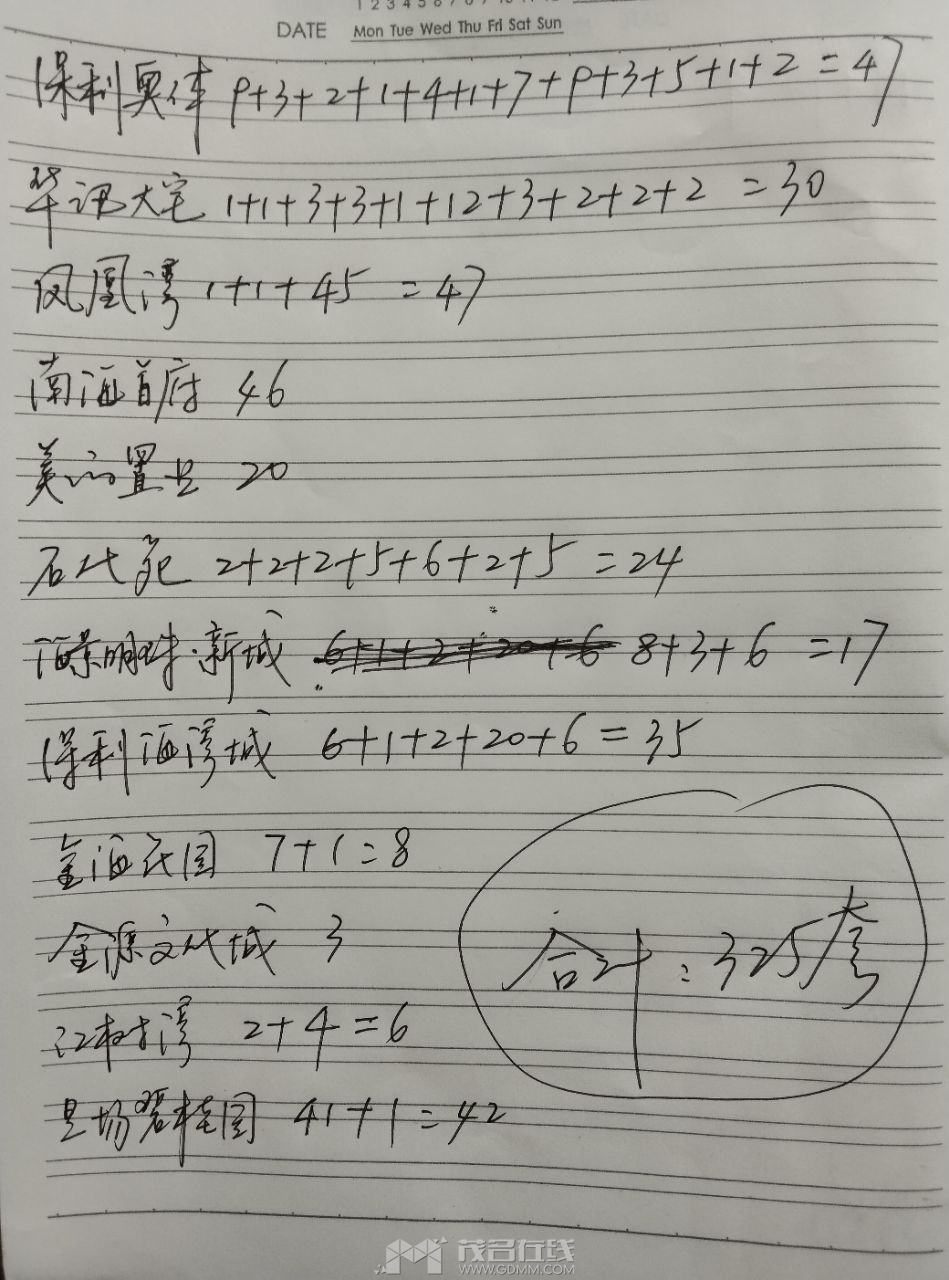 DATE Mon Tue Wed Thu Fri Sat Sun
保利奥体 9+3+2+1+4+1+7+9+3+5+1+2=47
华讯大宅 1+1+3+3+1+12+3+2+2+2=30
凤凰湾 1+1+45=47
南海首府 46
美的置业 20
石化苑 2+2+2+5+6+2+5=24
海景明珠·新城 6+1+2+20+6 8+3+6=17
保利海湾城 6+1+2+20+6=35
金海花园 7+1=8
金源文化城 3
合计:325套
湾 2+4=6
旦场碧桂园 41+1=42
茂名在线
WWW.GDMM.COM